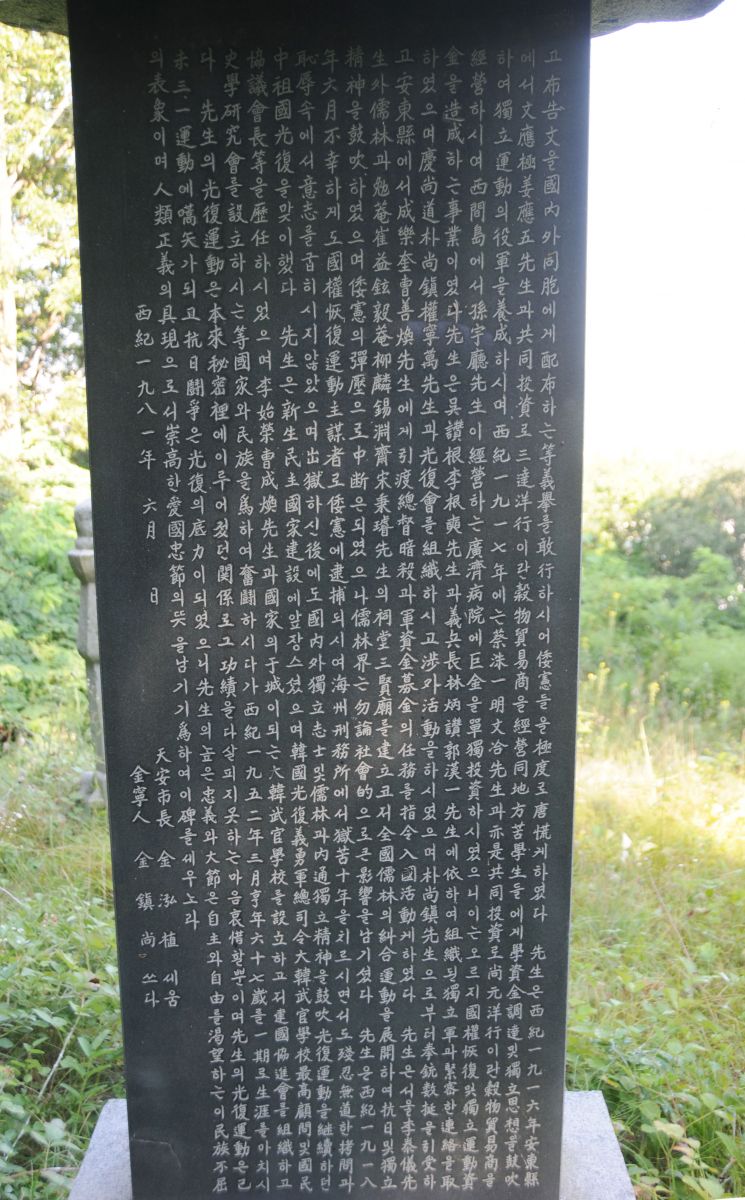 고 布告文을 國內外同胞에게 配布하는等 義擧를 敢行하시어 倭憲들을 極度로 唐慌게하였다 先生은 西紀一九一六年 安東縣
에서 文應極 姜應五先生과 共同投資로 三達洋行이란 穀物貿易商을 經營 同地方 苦學生들에게 學資金調達및 獨立思想을 鼓吹
하여 獨立運動의 役軍을 養成하시며 西紀一九一七年에는 蔡洙一 明文洽先生과 亦是 共同投資로 尙元洋行이란 穀物貿易商을
經營하시며 西間島에서 孫宇廳先生이 經營하는 廣濟病院에 巨金을 單獨投資하시였으니 이는 오르지 國權恢復및 獨立運動資
金을 造成하는 事業이였다 先生은 吳讚根 李根奭先生과 義兵長 林炳讚 郭漢一先生에 依하여 組織된 獨立軍과 緊密한 連絡을 取
하였으며 慶尙道 朴尙鎭 權寧萬先生과 光復會를 組織하시고 涉外活動을 하시였으며 朴尙鎭先生으로부터 拳銃數挺을 引受하
고 安東縣에서 成樂奎 曺善煥先生에게 引渡 總督暗殺과 軍資金募金의 任務를 指令 入國活動게하였다 先生은 서울 李泰儀先
生外 儒林과 勉菴 崔益鉉 毅菴 柳麟錫 淵齋 宋秉璿先生의 祠堂 三賢廟를 建立코저 全國儒林의 糾合運動을 展開하여 抗日및 獨立
精神을 鼓吹하였으며 倭憲의 彈壓으로 中断은되였으나 儒林界는 勿論 社會的으로 큰 影響을 남기셨다 先生은 西紀一九一八
年六月 不幸하게도 國權恢復運動 主謀者로 倭憲에 逮捕되시여 海州刑務所에서 獄苦十年을 치르시면서도 殘忍無道한 拷問과
恥辱속에서 意志를 굽히시지않았으며 出獄하신後에도 國內外 獨立志士및 儒林과 內通 獨立精神을 鼓吹 光復運動을 継續하던
中 祖國光復을 맞이했다 先生은 新生民主國家建設에 앞장스셨으며 韓國光復義勇軍總司令 大韓武官學校最高顧問및 國民
協議會長等을 歷任하시였으며 李始榮 曺成煥先生과 國家의 于城이되는 大韓武官學校를 設立하고 저 建國協進會를 組織하고
史學硏究會를 設立하시는等 國家와 民族을 爲하여 奮鬪하시다가 西紀一九五二年三月 享年六十七歲를 一期로 生涯를 마치시
다 先生의 光復運動은 本來 秘密裡에 이루어졌던 關係로 그 功績을 다 살피지못하는 마음 哀惜할뿐이며 先生의 光復運動은 己
未三·一運動에 嚆矢가되고 抗日鬪爭은 光復의 底力이되였으니 先生의 높은 忠義와 大節은 自主와 自由를 渴望하는 이 民族 不屈
의 表象이며 人類正義의 具現으로서 崇高한 愛國忠節의 뜻을 남기기 爲하여 이 碑를 세우노라
西紀一九八一年 六月 日
天安市長 金泓植 세움
金寧人 金鎭尙 쓰다